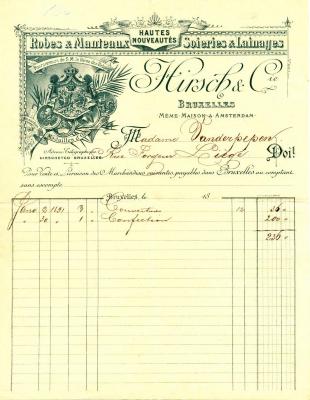 HAUTES
NOUVEAUTÉS
Robes & Manteaux Soieries & Lainages
Hirsch & Cie
BRUXELLES
MÊME MAISON À AMSTERDAM
Médailles
Adresse Télégraphique
HIRSCHCO BRUXELLES
Madame Vanderpepen
Rue Forgeur Liège Doit
Pour Vente et Livraison des Marchandises suivantes, payables dans Bruxelles au comptant
sans escompte
Bruxelles, le 18
Janv. 2 1891 3 " Couvertures 12 36 "
" 30 " 1 " Confection 200 "
236 "